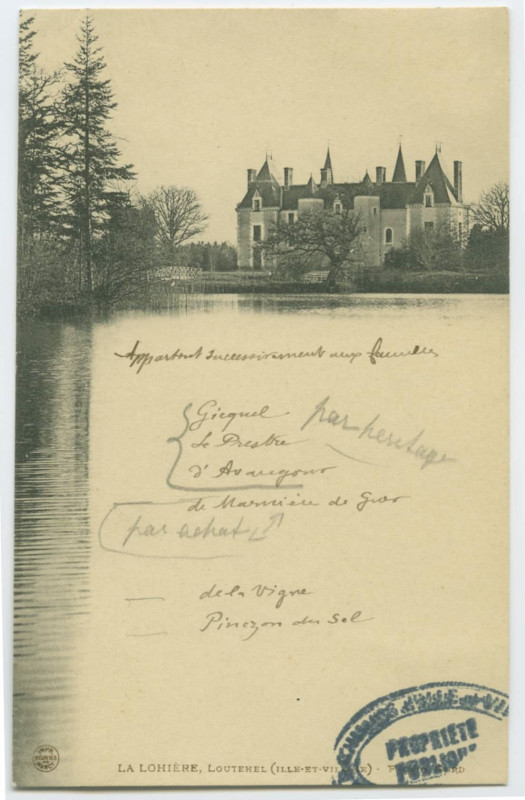 Appartint successivement aux familles
Gicquel
Le Prestre
d'Avaugour
par héritage
de Marnière de Guer
par achat
de la Vigne
Pinczon du Sel
ILLE-ET-VIL
PROPRIÉTÉ
PUBLIQUE
LA LOHIÈRE, LOUTEHEL (ILLE-ET-VILAINE)